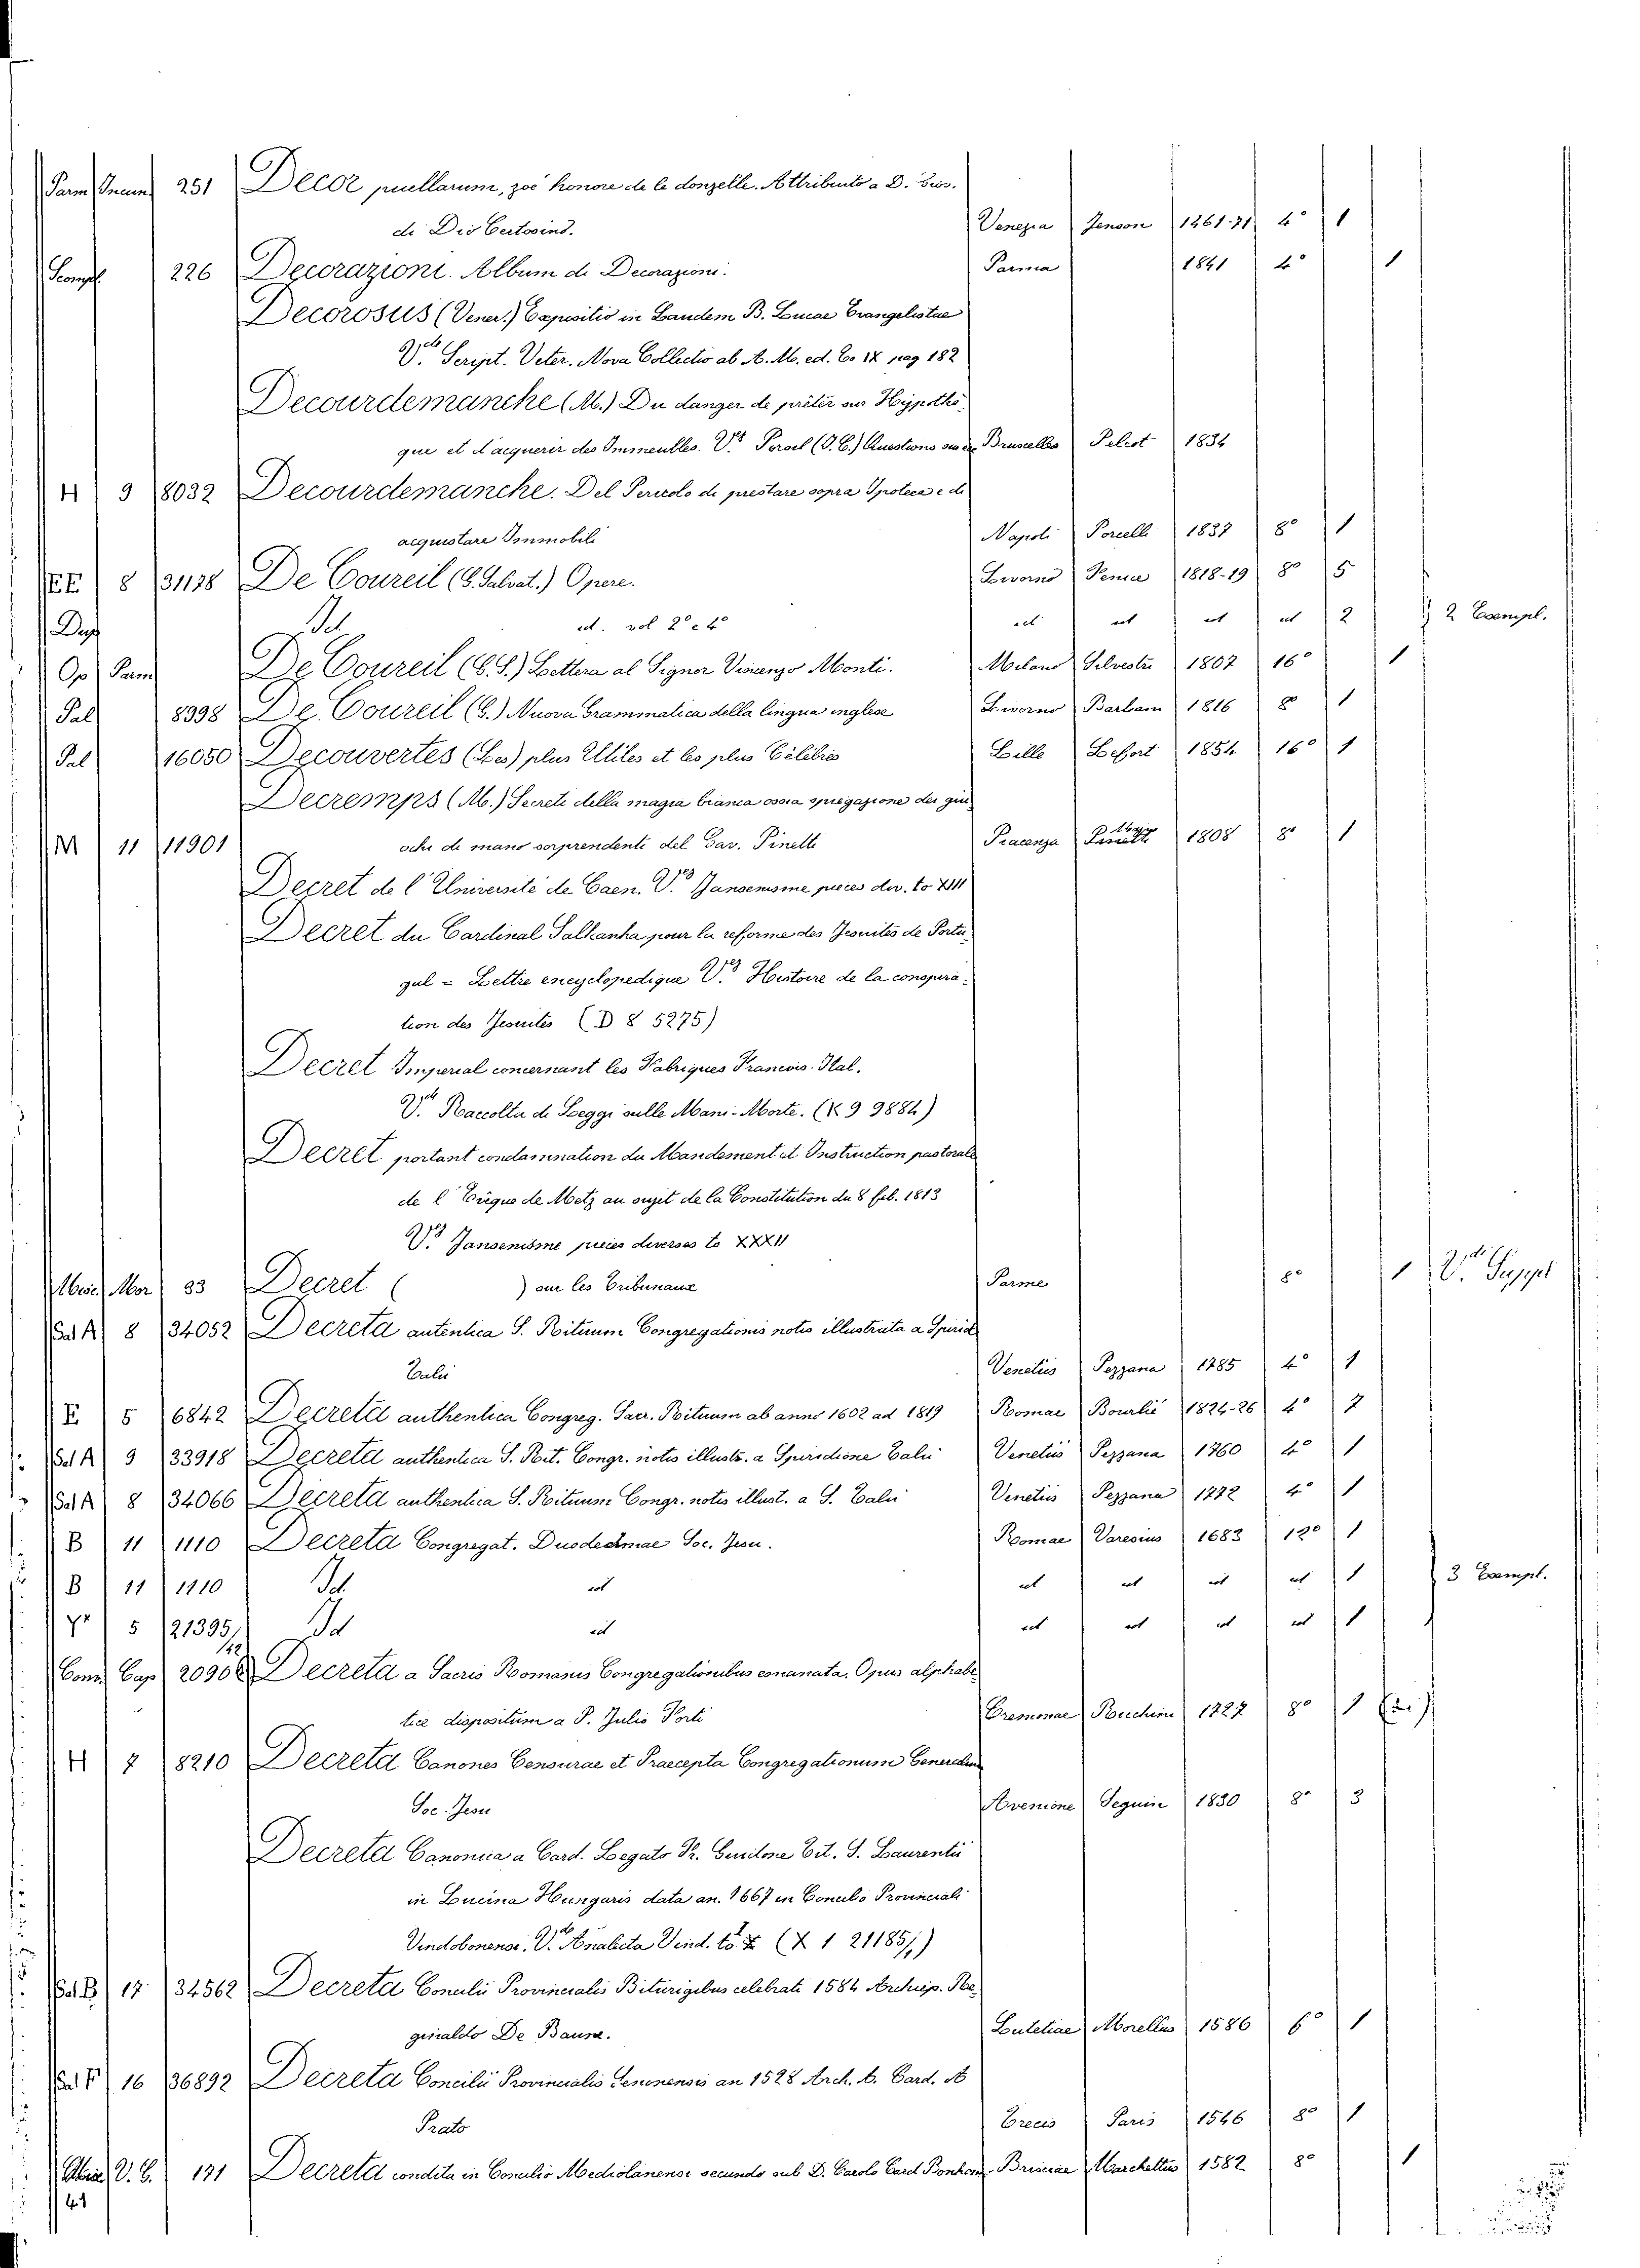 Parm 251 Decor puellarum, zoè honore de le donzelle. Attribuito a D.
di Dio Certosino. Venezia Jenson 1461-71 4° 1
226 Decorazioni. Album di Decorazioni. Parma 1841 4° 1
Decorosus (Vener.) Expositio in Laudem B. Lucae Evangelistae
V. Script. Veter. Nova Collectio ab A. M. ed. to IX pag 182
Decourdemanche (M.) Du danger de prêter sur Hypothè-
que et d'acquerir des Immeubles. V. (J. C.) Questions sur Bruxelles 1834
H 9 8032 Decourdemanche. Del Pericolo di prestare sopra Ipoteca e di
acquistare Immobili Napoli Porcelli 1837 8° 1
EE 8 31138 De Coureil (G. Salvat.) Opere. Livorno 1818-19 8° 5
Id id. vol 2° e 4° id id id id 2 2 Esempl.
Op Parm De Coureil (G. S.) Lettera al Signor Vincenzo Monti. Milano Silvestri 1807 16° 1
Pal 8998 De Coureil (G.) Nuova Grammatica della lingua inglese Livorno 1816 8° 1
Pal 16050 Decouvertes (Les) plus Utiles et les plus Célèbres Lille Lefort 1854 16° 1
Decremps (M.) Secreti della magia bianca ossia spiegazione dei giu-
M 11 11901 ochi di mano sorprendenti del Cav. Pinetti Piacenza 1808 8° 1
Decret de l'Université de Caen. V. Jansenisme pieces div. to XIII
Decret du Cardinal Salkanha pour la reforme des Jesuites de Portu-
gal = Lettre encyclopedique V. Histoire de la conspira-
tion des Jesuites (D 8 5275)
Decret Imperial concernant les Fabriques Francois-Ital.
V. Raccolta di Leggi sulle Mani-Morte. (K 9 9884)
Decret portant condamnation du Mandement et Instruction pastorale
de l'Evêque de Metz au sujet de la Constitution du 8 feb. 1813
V. Jansenisme pieces diverses to XXXII
33 Decret ( ) sur les Tribunaux Parme 8° 1 V. Suppl
Sal A 8 34052 Decreta autentica S. Rituum Congregationis notis illustrata a Spirid
Talii Venetiis Pezzana 1785 4° 1
E 5 6842 Decreta authentica Congreg. Sacr. Rituum ab anno 1602 ad 1819 Romae Bourlié 1824-26 4° 7
Sal A 9 33918 Decreta authentica S. Rit. Congr. notis illustr. a Spiridione Talii Venetiis Pezzana 1760 4° 1
Sal A 8 34066 Decreta authentica S. Rituum Congr. notis illust. a S. Talii Venetiis Pezzana 1772 4° 1
B 11 1110 Decreta Congregat. Duodecimae Soc. Jesu. Romae Varesius 1683 12° 1
B 11 1110 Id id id id id id 1 3 Esempl.
5 21395 Id id id id id id 1
Decreta a Sacris Romanis Congregationibus emanata. Opus alphabe-
tice dispositum a P. Julio Porti Cremonae Ricchini 1727 8° 1
H 7 8210 Decreta Canones Censurae et Praecepta Congregationum Generalium
Soc. Jesu Avenione Seguin 1830 8° 3
Decreta Canonica a Card. Legato Fr. Guidone Tit. S. Laurentii
in Lucina Hungaris data an. 1667 in Concilio Provinciali
Vindobonensi. V. Analecta Vind. to (X 1 21185)
Sal B 17 34562 Decreta Concilii Provincialis Biturigibus celebrati 1584 Archiep. Re-
ginaldo De Baune. Lutetiae Morellus 1586 6° 1
Sal F 16 36892 Decreta Concilii Provincialis Senonensis an 1528 Arch. Card. A
Prato Paris 1546 8° 1
V. C. 171 Decreta condita in Concilio Mediolanensi secundo sub D. Carolo Card Brixiae Marchettus 1582 8° 1
41